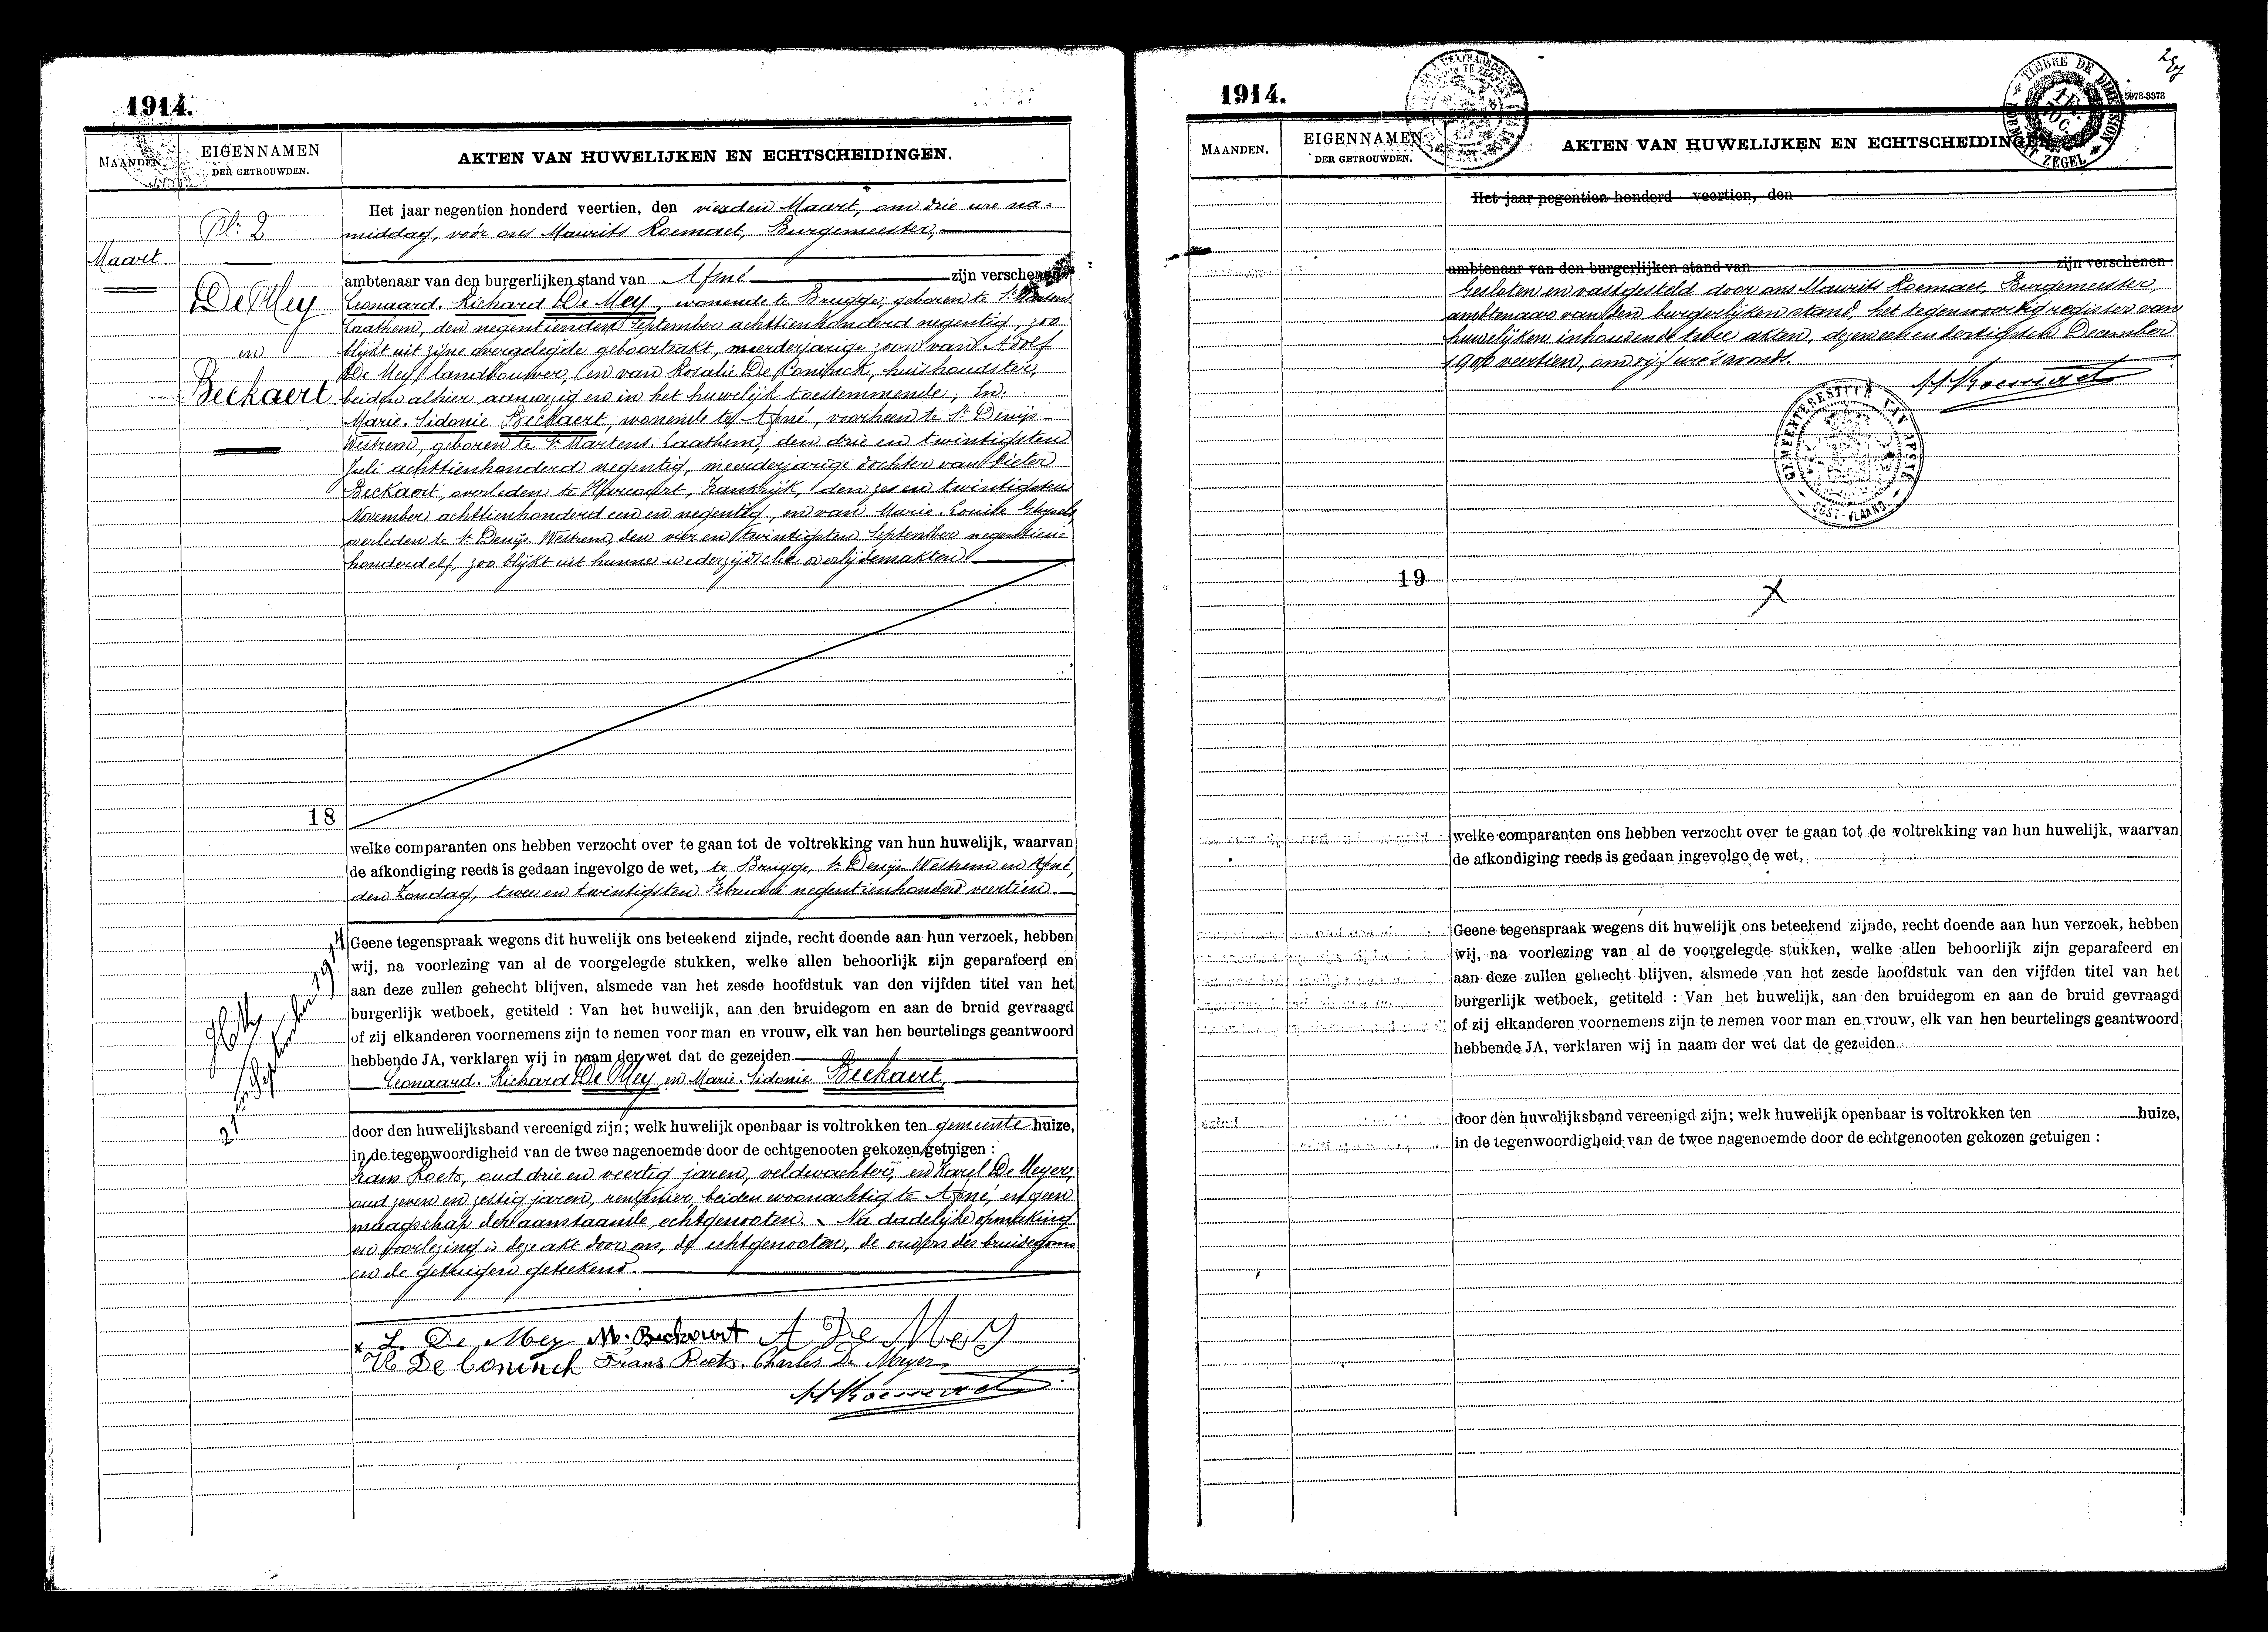 1914.
MAANDEN.
EIGENNAMEN
DER GETROUWDEN.
AKTEN VAN HUWELIJKEN EN ECHTSCHEIDINGEN.
N. 2
Maart
De Mey
en
Beckaert
18
Het jaar negentien honderd veertien, den vierden Maart, om drie ure na=
middag, voór ons Maurits Roemaet, Burgemeester,
ambtenaar van den burgerlijken stand van Afsné zijn verschenen
Leonaard-Richard De Mey, wonende te Brugge, geboren te St Martens
Laathem, den negentienden September achttienhonderd negentig, zoo
blijkt uit zijne overgelegde geboorteakt, meerderjarige zoon van Adolf
De Mey, landbouwer, en van Rosalie De Coninck, huishoudster,
beiden alhier aanwezig en in het huwelijk toestemmende; En:
Marie-Sidonie Beckaert, wonende te Afsné, voorheen te St Denijs
Westrem, geboren te St Martens-Laathem, den drie en twintigsten
Juli achttienhonderd negentig, meerderjarige dochter van Pieter
Beckaert, overleden te Harcourt, Frankrijk, den zes en twintigsten
November achttienhonderd een en negentig, en van Marie-Louise
overleden te St Denijs Westrem, den vier en twintigsten September negentien=
honderd elf, zoo blijkt uit hunne wederzijdsche overlijdensakten
welke comparanten ons hebben verzocht over te gaan tot de voltrekking van hun huwelijk, waarvan
de afkondiging reeds is gedaan ingevolge de wet, te Brugge, St Denijs Westrem en Afsné,
den Zondag, twee en twintigsten Februari negentienhonderd veertien.
Geene tegenspraak wegens dit huwelijk ons beteekend zijnde, recht doende aan hun verzoek, hebben
wij, na voorlezing van al de voorgelegde stukken, welke allen behoorlijk zijn geparafeerd en
aan deze zullen gehecht blijven, alsmede van het zesde hoofdstuk van den vijfden titel van het
burgerlijk wetboek, getiteld : Van het huwelijk, aan den bruidegom en aan de bruid gevraagd
of zij elkanderen voornemens zijn te nemen voor man en vrouw, elk van hen beurtelings geantwoord
hebbende JA, verklaren wij in naam der wet dat de gezeiden
Leonaard-Richard De Mey en Marie-Sidonie Beckaert,
door den huwelijksband vereenigd zijn; welk huwelijk openbaar is voltrokken ten gemeente huize,
in de tegenwoordigheid van de twee nagenoemde door de echtgenooten gekozen getuigen :
Frans Roets, oud drie en veertig jaren, veldwachter, en Karel De Meyer,
oud zeven en zestig jaren, rentenier, beiden woonachtig te Afsné, en geen
maagschap der aanstaande echtgenooten. Na dadelijke opmaking
en voorlezing is deze akt door ons, de echtgenooten, de ouders des bruidegoms
en de getuigen geteekend.
L. De Mey M. Beckaert A De Mey
De Coninck Frans Roets. Charles De Meyer
M Roemaet
1914.
5973-3373
TIMBRE DE DIMENSION
FORMAAT ZEGEL
MAANDEN.
EIGENNAMEN
DER GETROUWDEN.
AKTEN VAN HUWELIJKEN EN ECHTSCHEIDINGEN
Het jaar negentien honderd veertien, den
ambtenaar van den burgerlijken stand van zijn verschenen:
Gesloten en vastgesteld door ons Maurits Roemaet, Burgemeester,
ambtenaar van den burgerlijken stand, het tegenwoordig register van
huwelijken inhoudende twee akten, dezen een en dertigsten December
1900 veertien, om vijf ure 's avonds.
M Roemaet
GEMEENTEBESTUUR VAN AFSNÉ
OOST-VLAAND.
19
welke comparanten ons hebben verzocht over te gaan tot de voltrekking van hun huwelijk, waarvan
de afkondiging reeds is gedaan ingevolge de wet,
Geene tegenspraak wegens dit huwelijk ons beteekend zijnde, recht doende aan hun verzoek, hebben
wij, na voorlezing van al de voorgelegde stukken, welke allen behoorlijk zijn geparafeerd en
aan deze zullen gehecht blijven, alsmede van het zesde hoofdstuk van den vijfden titel van het
burgerlijk wetboek, getiteld : Van het huwelijk, aan den bruidegom en aan de bruid gevraagd
of zij elkanderen voornemens zijn te nemen voor man en vrouw, elk van hen beurtelings geantwoord
hebbende JA, verklaren wij in naam der wet dat de gezeiden
door den huwelijksband vereenigd zijn; welk huwelijk openbaar is voltrokken ten huize,
in de tegenwoordigheid van de twee nagenoemde door de echtgenooten gekozen getuigen :